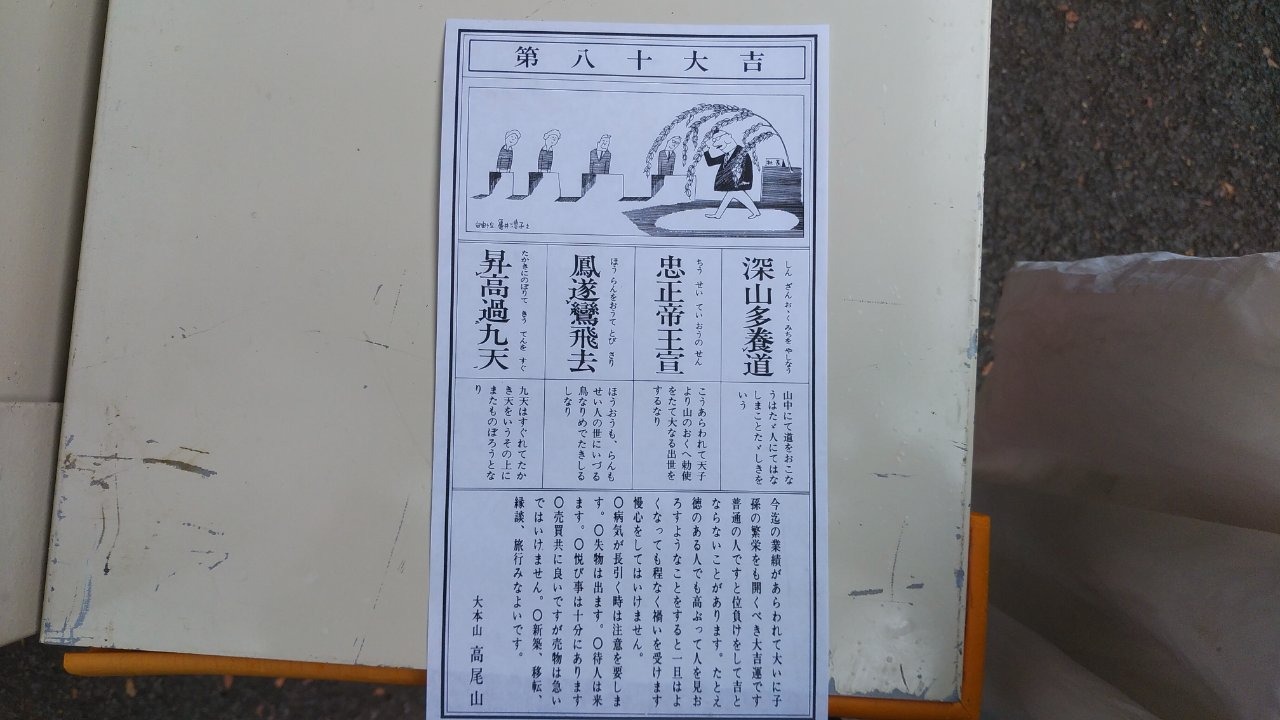 第八十大吉
深山多養道
しんざんおゝくみちをやしなう
忠正帝王宣
ちうせいていおうのせん
鳳遂鸞飛去
ほうらんをおうてとびさり
昇高過九天
たかきにのぼりて、きうてんをすぐ
山中にて道をおこな
うはたゞ人にてはな
しまことたゞしきを
いう
こうあらわれて天子
より山のおくへ勅使
をたて大なる出世を
するなり
ほうおうも、らんも
せい人の世にいづる
鳥なりめでたきしる
しなり
九天はすぐれてたか
き天をいうその上に
またものぼろうとな
り
今迄の業績があらわれて大いに子
孫の繁栄をも開くべき大吉運です
普通の人ですと位負けをして吉と
ならないことがあります。たとえ
徳のある人でも高ぶって人を見お
ろすようなことをすると一旦はよ
くなっても程なく禍いを受けます
慢心をしてはいけません。
〇病気が長引く時は注意を要しま
す。〇失物は出ます。〇待人は来
ます。〇悦び事は十分にあります
〇売買共に良いですが売物は急い
ではいけません。〇新築、移転、
縁談、旅行みなよいです。
大本山 高尾山